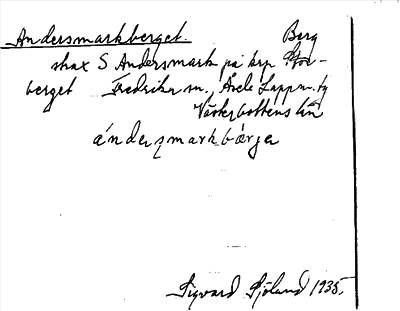 Andersmarkberget. Berg
strax S Andersmark på krp Stor-
berget Fredrika sn, Åsele Lappm. ty
Västerbottens län
ándersmarkbærje
Sigvard Sjöland 1935.